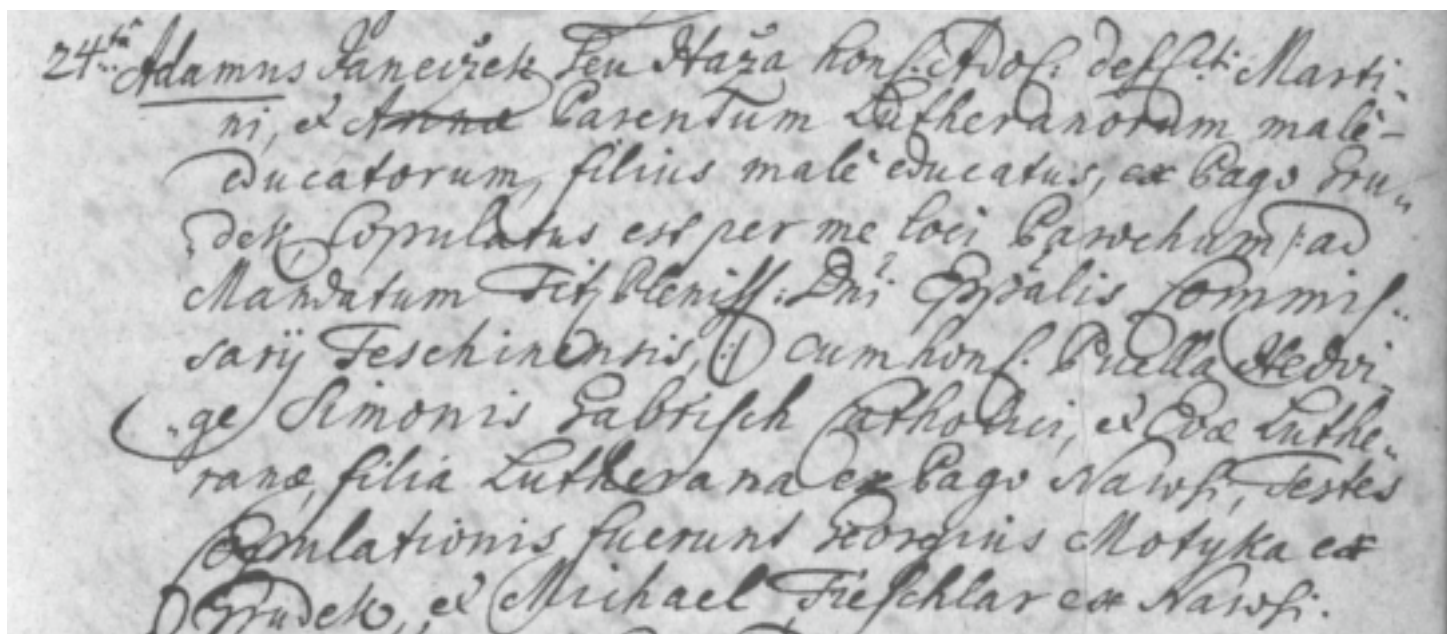 24ta Adamus Janeczek seu Haża hons: Adol: deffcti: Marti-
ni, et Annæ Parentum Lutheranorum malè-
educatorum, filius malè educatus, ex Pago Gru-
dek, Copulatus est per me loci Parochum /: ad
Mandatum Titj Pleniss: Dni Eppalis Commis-
sarij Teschinensis, :/ cum hons: Puella Hedvi-
ge Simonis Gabrisch Catholici, et Evæ Luthe-
ranæ, filia Lutherana ex Pago Nawsi, Testes
Copulationis fuerunt Georgius Motyka ex
Grudek, et Michael Tieschlar ex Nawsi.